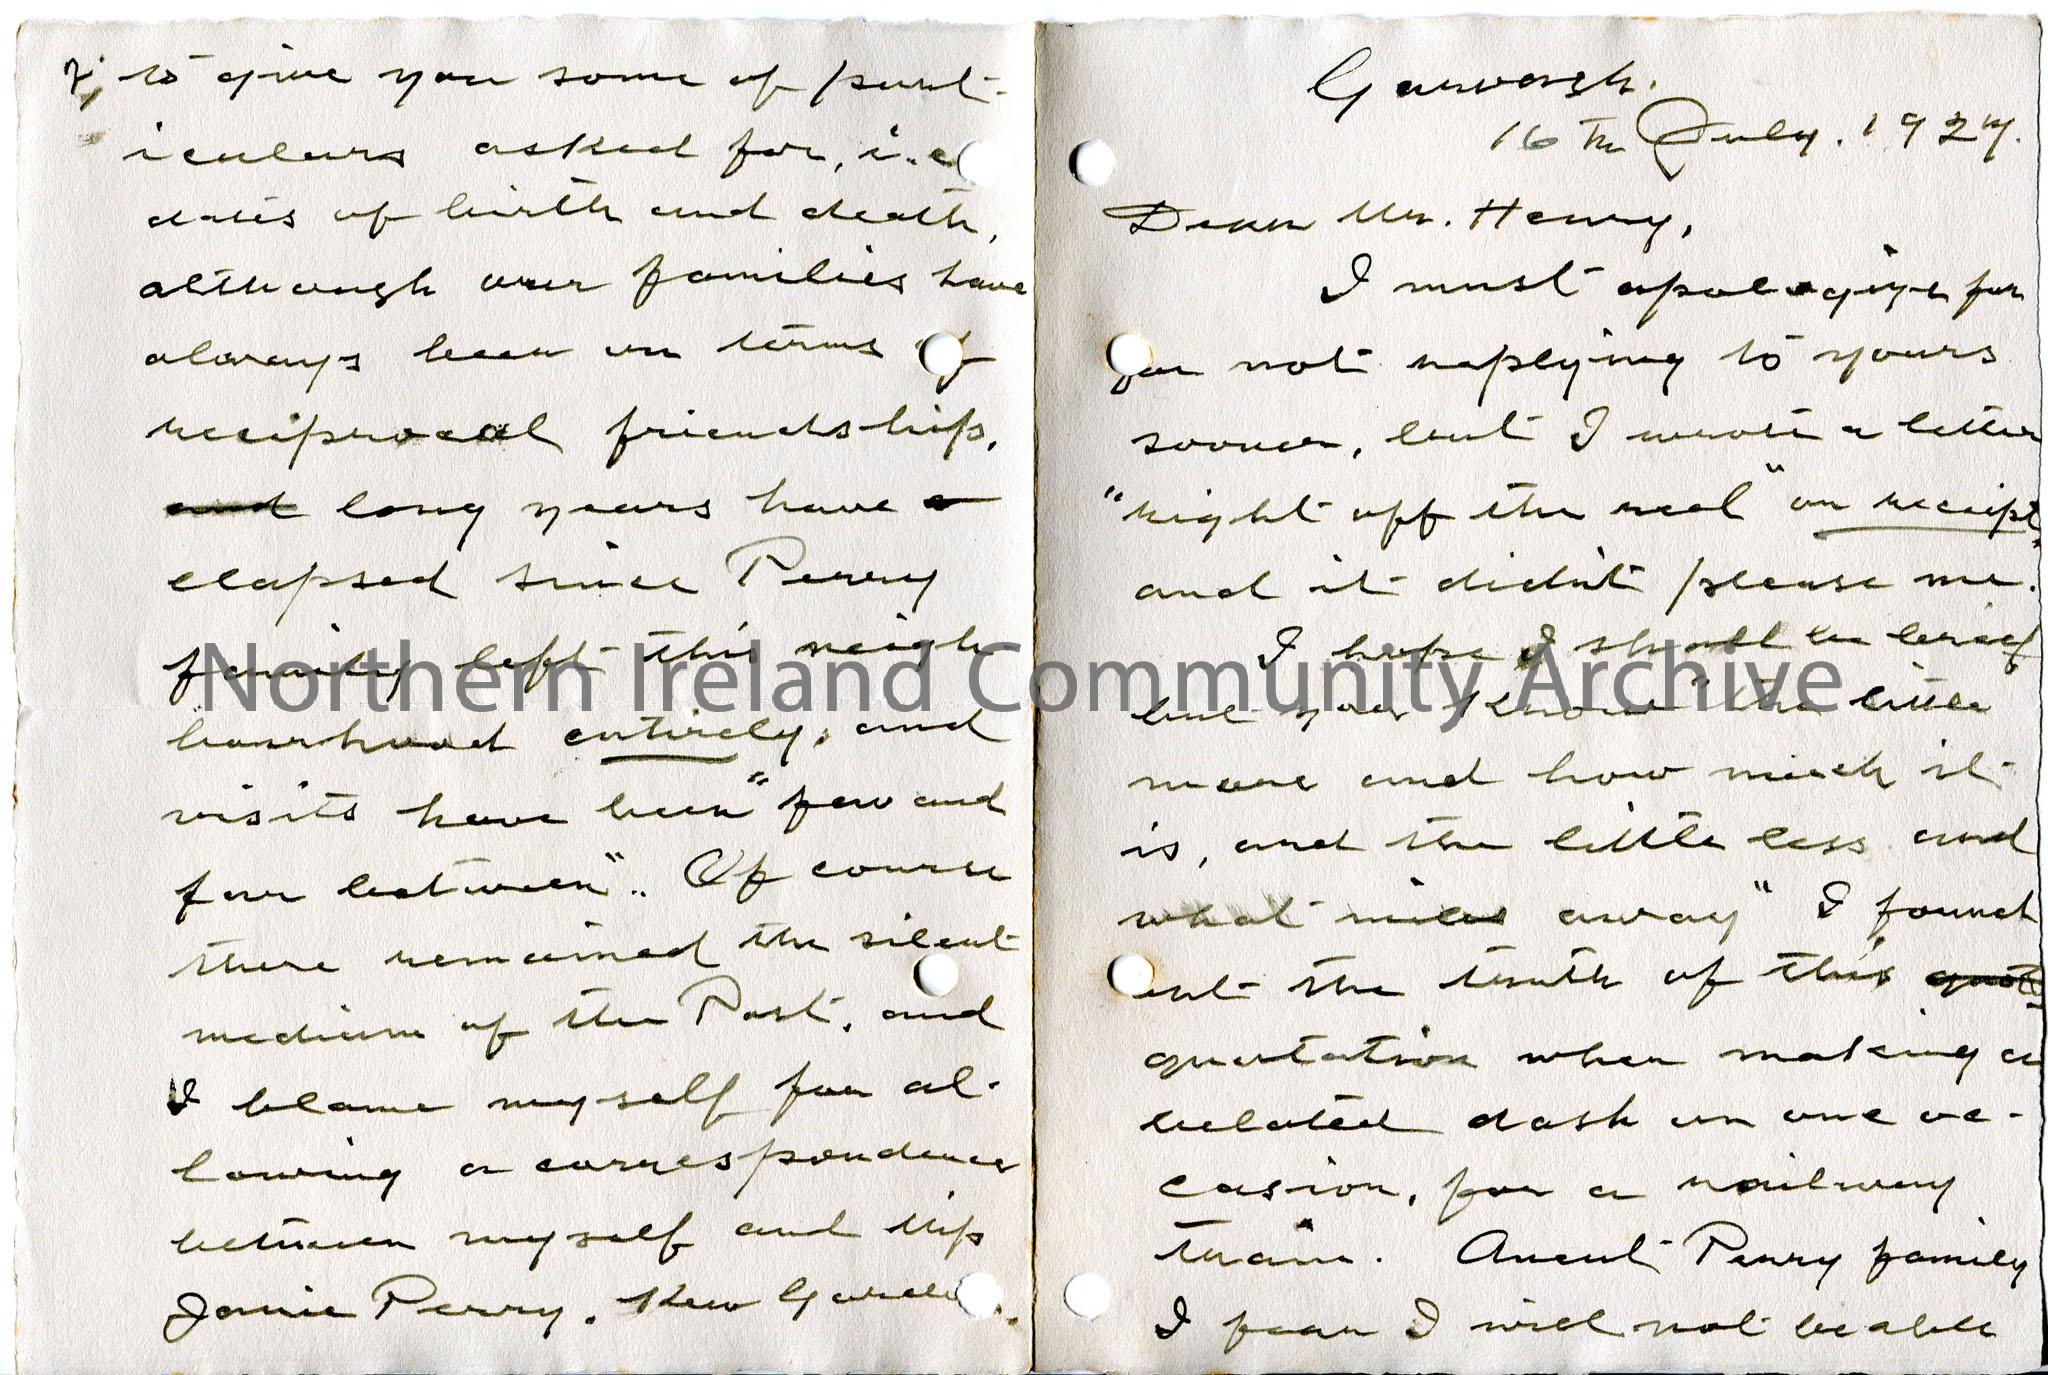 Garvagh.
16th July. 1927.
Dear Mr. Henry,
I must apologize for
for not replying to yours
sooner, but I wrote a letter
"right off the reel" on receipt,
and it didn't please me.
I hope I shall be brief
but you know "the little
more and how much it
is, and the little less and
what miles away" I found
out the truth of this quot
quotation when making a
belated dash on one oc-
casion, for a railway
train. Anent Perry family
I fear I will not be able
2, to give you some of part-
iculars asked for, i.e
dates of birth and death,
although our families have
always been on terms of
reciprocal friendship,
and long years have e
elapsed since Perry
family left this neigh
bourhood entirely, and
visits have been "few and
far between". Of course
there remained the silent
medium of the Post, and
I blame myself for al-
lowing a correspondence
between myself and
Janie Perry, Kew Gardens.
Northern Ireland Community Archive